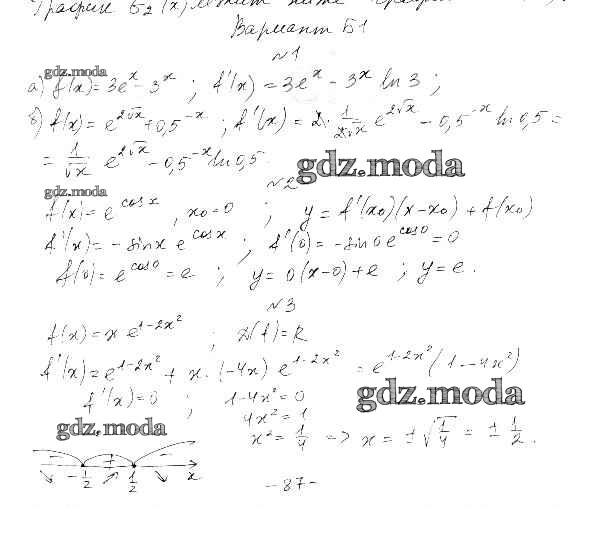 График Б2 (x)
Вариант Б1
№1
gdz.moda
а) f(x) = 3e^x - 3^x ; f'(x) = 3e^x - 3^x ln 3 ;
б) f(x) = e^{2√x} + 0,5^{-x} ; f'(x) = 2 · 1/(2√x) e^{2√x} - 0,5^{-x} ln 0,5 =
= 1/√x e^{2√x} - 0,5^{-x} ln 0,5.
gdz.moda
№2
gdz.moda
f(x) = e^{cos x} , x₀ = 0 ; y = f'(x₀)(x - x₀) + f(x₀)
f'(x) = - sin x e^{cos x} ; f'(0) = - sin 0 e^{cos 0} = 0
f(0) = e^{cos 0} = e ; y = 0(x - 0) + e ; y = e .
№3
f(x) = x e^{1-2x²} ; D(f) = R
f'(x) = e^{1-2x²} + x · (-4x) e^{1-2x²} = e^{1-2x²} (1 - 4x²)
gdz.moda
f'(x) = 0 ; 1 - 4x² = 0
4x² = 1
gdz.moda
x² = 1/4 => x = ± √(1/4) = ± 1/2 .
- + -
↘ -1/2 ↗ 1/2 ↘ x
- 87 -